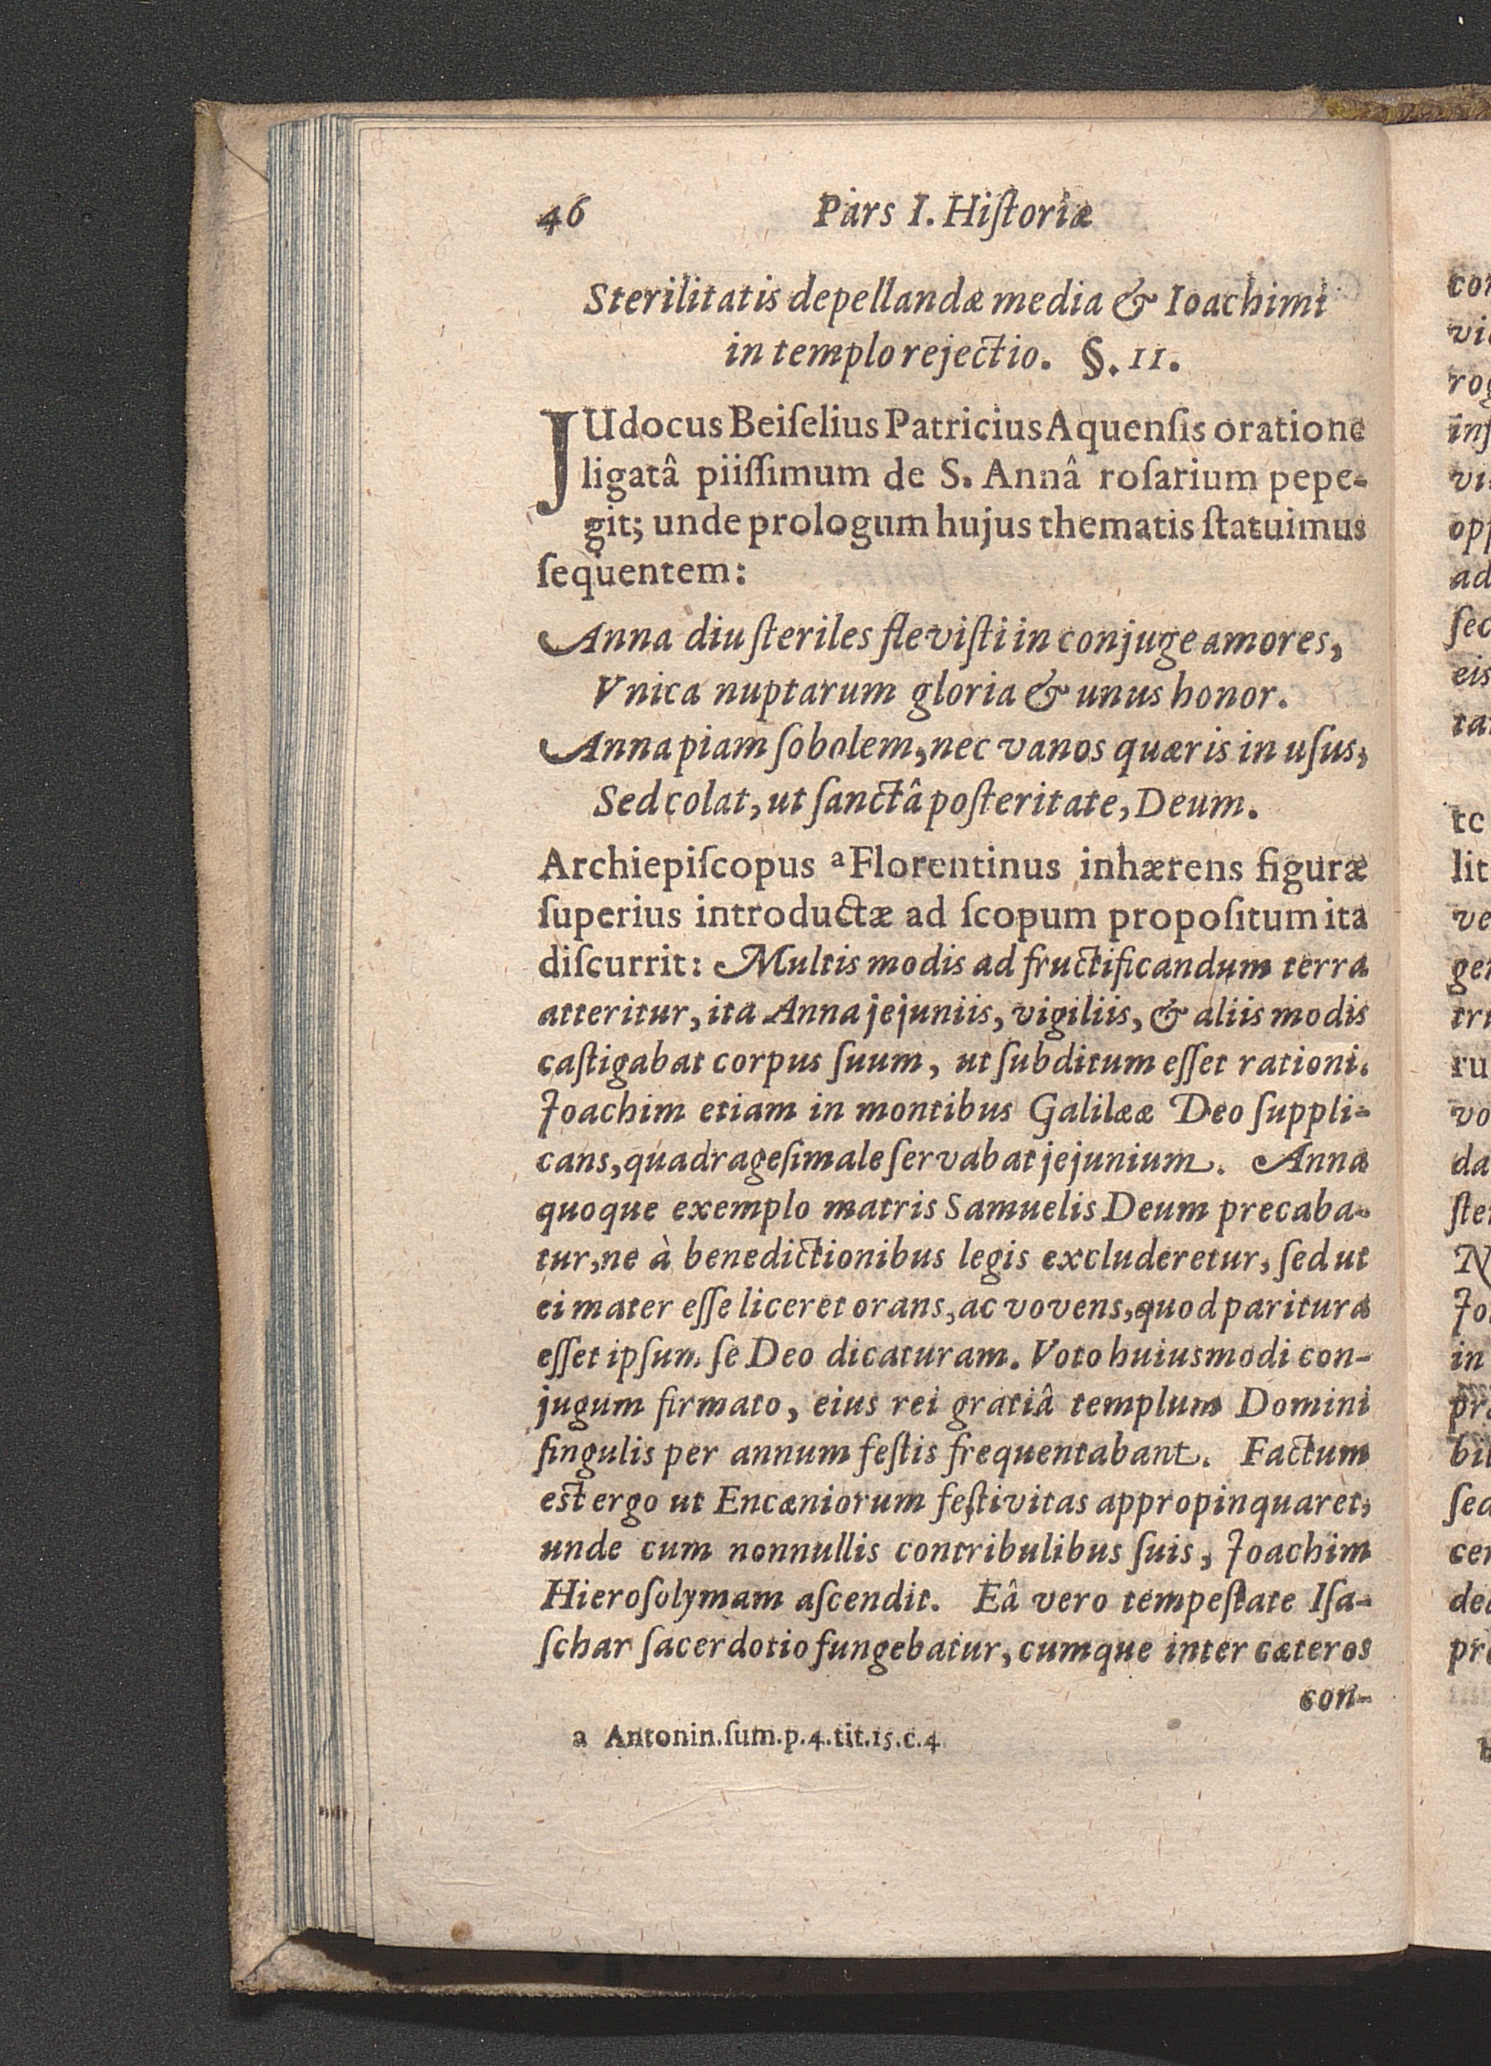 46 Pars I. Hiſtoriæ
Sterilitatis depellandæ media & Ioachimi
in templo rejectio. §. II.
JUdocus Beiſelius Patricius Aquenſis oratione
ligatâ piiſſimum de S. Annâ roſarium pepe-
git; unde prologum hujus thematis ſtatuimus
ſequentem:
Anna diu ſteriles fleviſti in conjuge amores,
Vnica nuptarum gloria & unus honor.
Anna piam ſobolem, nec vanos quæris in uſus,
Sed colat, ut ſanctâ poſteritate, Deum.
Archiepiſcopus a Florentinus inhærens figuræ
ſuperius introductæ ad ſcopum propoſitum ita
diſcurrit: Multis modis ad fructificandum terra
atteritur, ita Anna jejuniis, vigiliis, & aliis modis
caſtigabat corpus ſuum, ut ſubditum eſſet rationi.
Joachim etiam in montibus Galilææ Deo ſuppli-
cans, quadrageſimale ſervabat jejunium. Anna
quoque exemplo matris Samuelis Deum precaba-
tur, ne à benedictionibus legis excluderetur, ſed ut
ei mater eſſe liceret orans, ac vovens, quod paritura
eſſet ipſum ſe Deo dicaturam. Voto huiusmodi con-
jugum firmato, eius rei gratiâ templum Domini
ſingulis per annum feſtis frequentabant. Factum
est ergo ut Encæniorum feſtivitas appropinquaret,
unde cum nonnullis contribulibus ſuis, Joachim
Hieroſolymam aſcendit. Eâ vero tempeſtate Iſa-
ſchar ſacerdotio fungebatur, cumque inter cæteros
con-
a Antonin. ſum. p. 4. tit. 15. c. 4